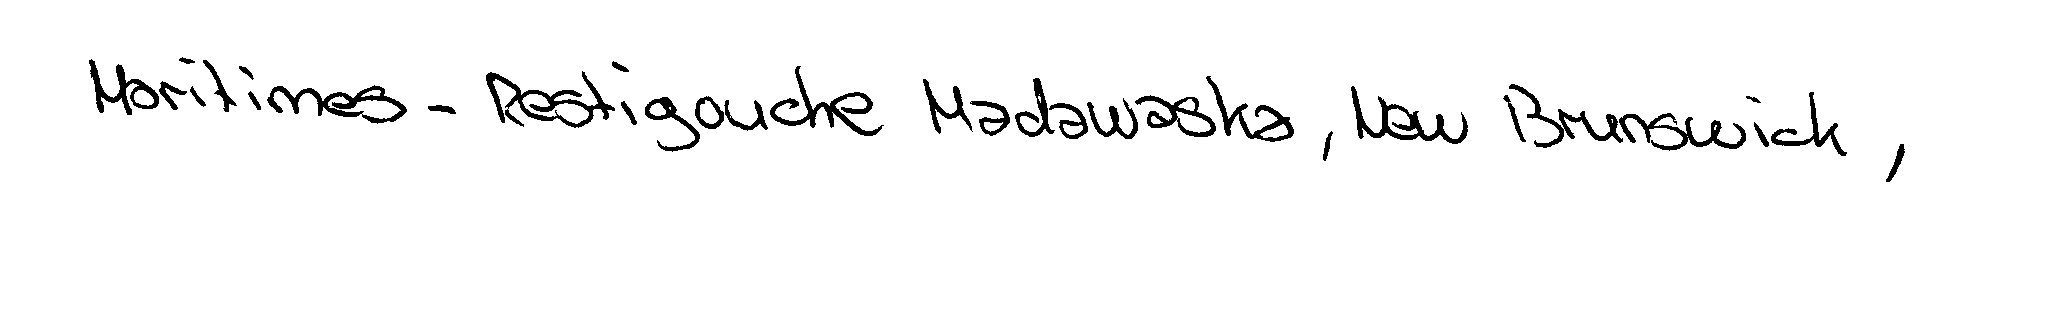 Maritimes - Restigouche Madawaska, New Brunswick,